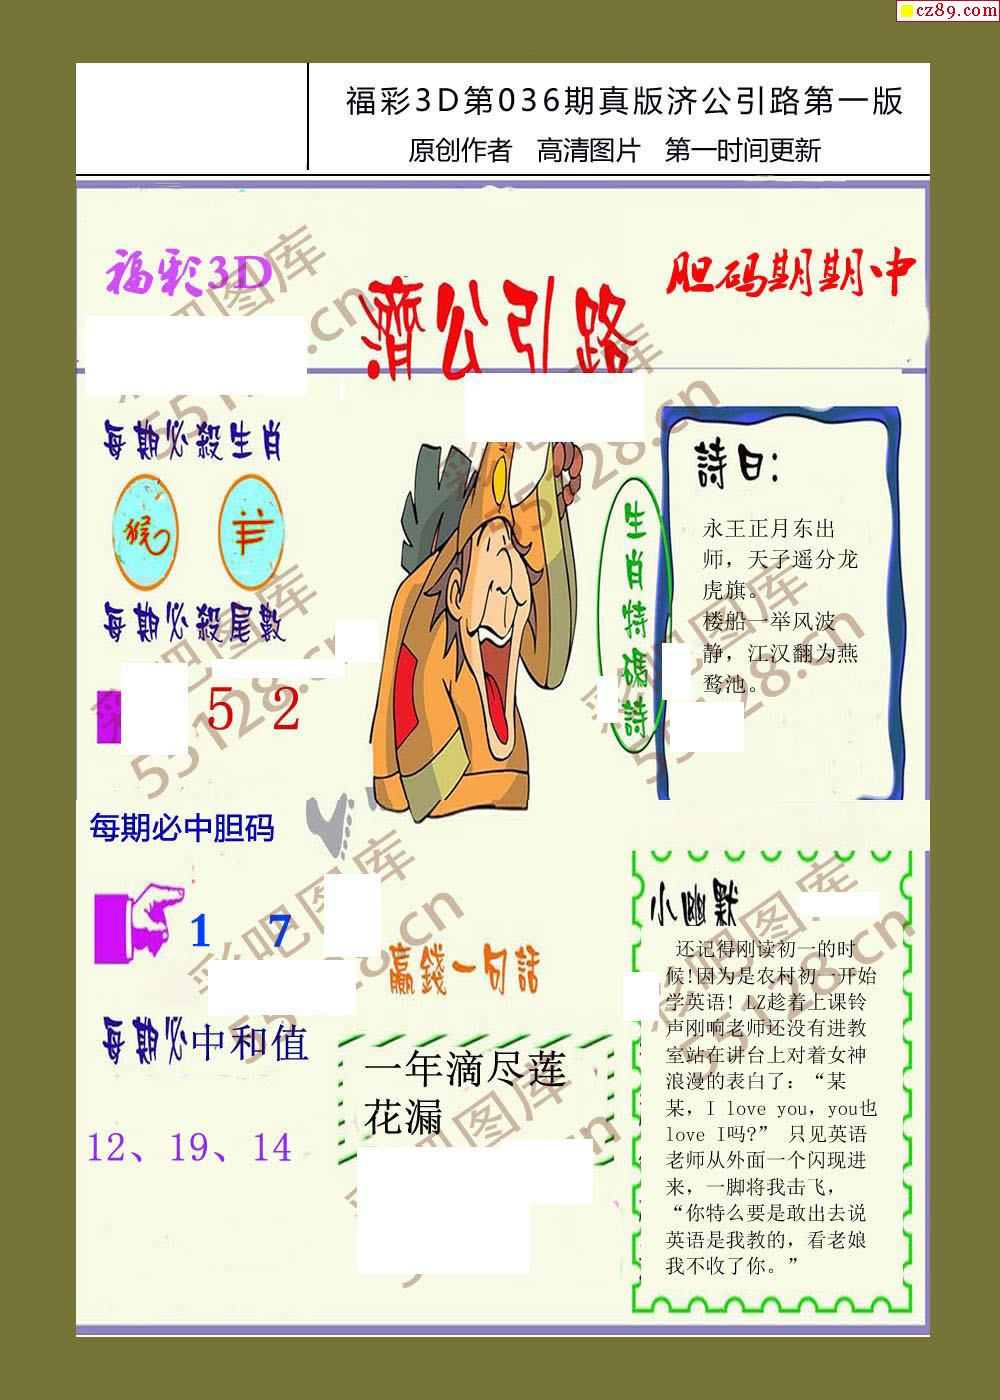 cz89.com
福彩3D第036期真版济公引路第一版
原创作者 高清图片 第一时间更新
福彩3D
濟公引路
胆码期期中
每期必殺生肖
猴 羊
每期必殺尾數
5 2
每期必中胆码
1 7
每期必中和值
12、19、14
生肖特碼詩
詩曰:
永王正月东出
师，天子遥分龙
虎旗。
楼船一举风波
静，江汉翻为燕
鹜池。
贏錢一句話
一年滴尽莲
花漏
小幽默
还记得刚读初一的时
候!因为是农村初一开始
学英语! LZ趁着上课铃
声刚响老师还没有进教
室站在讲台上对着女神
浪漫的表白了：“某
某，I love you，you也
love I吗?” 只见英语
老师从外面一个闪现进
来，一脚将我击飞，
“你特么要是敢出去说
英语是我教的，看老娘
我不收了你。”
彩吧图库
55128.cn
彩吧图库
55128.cn
彩吧图库
55128.cn
彩吧图库
55128.cn
彩吧图库
55128.cn
彩吧图库
55128.cn
彩吧图库
55128.cn